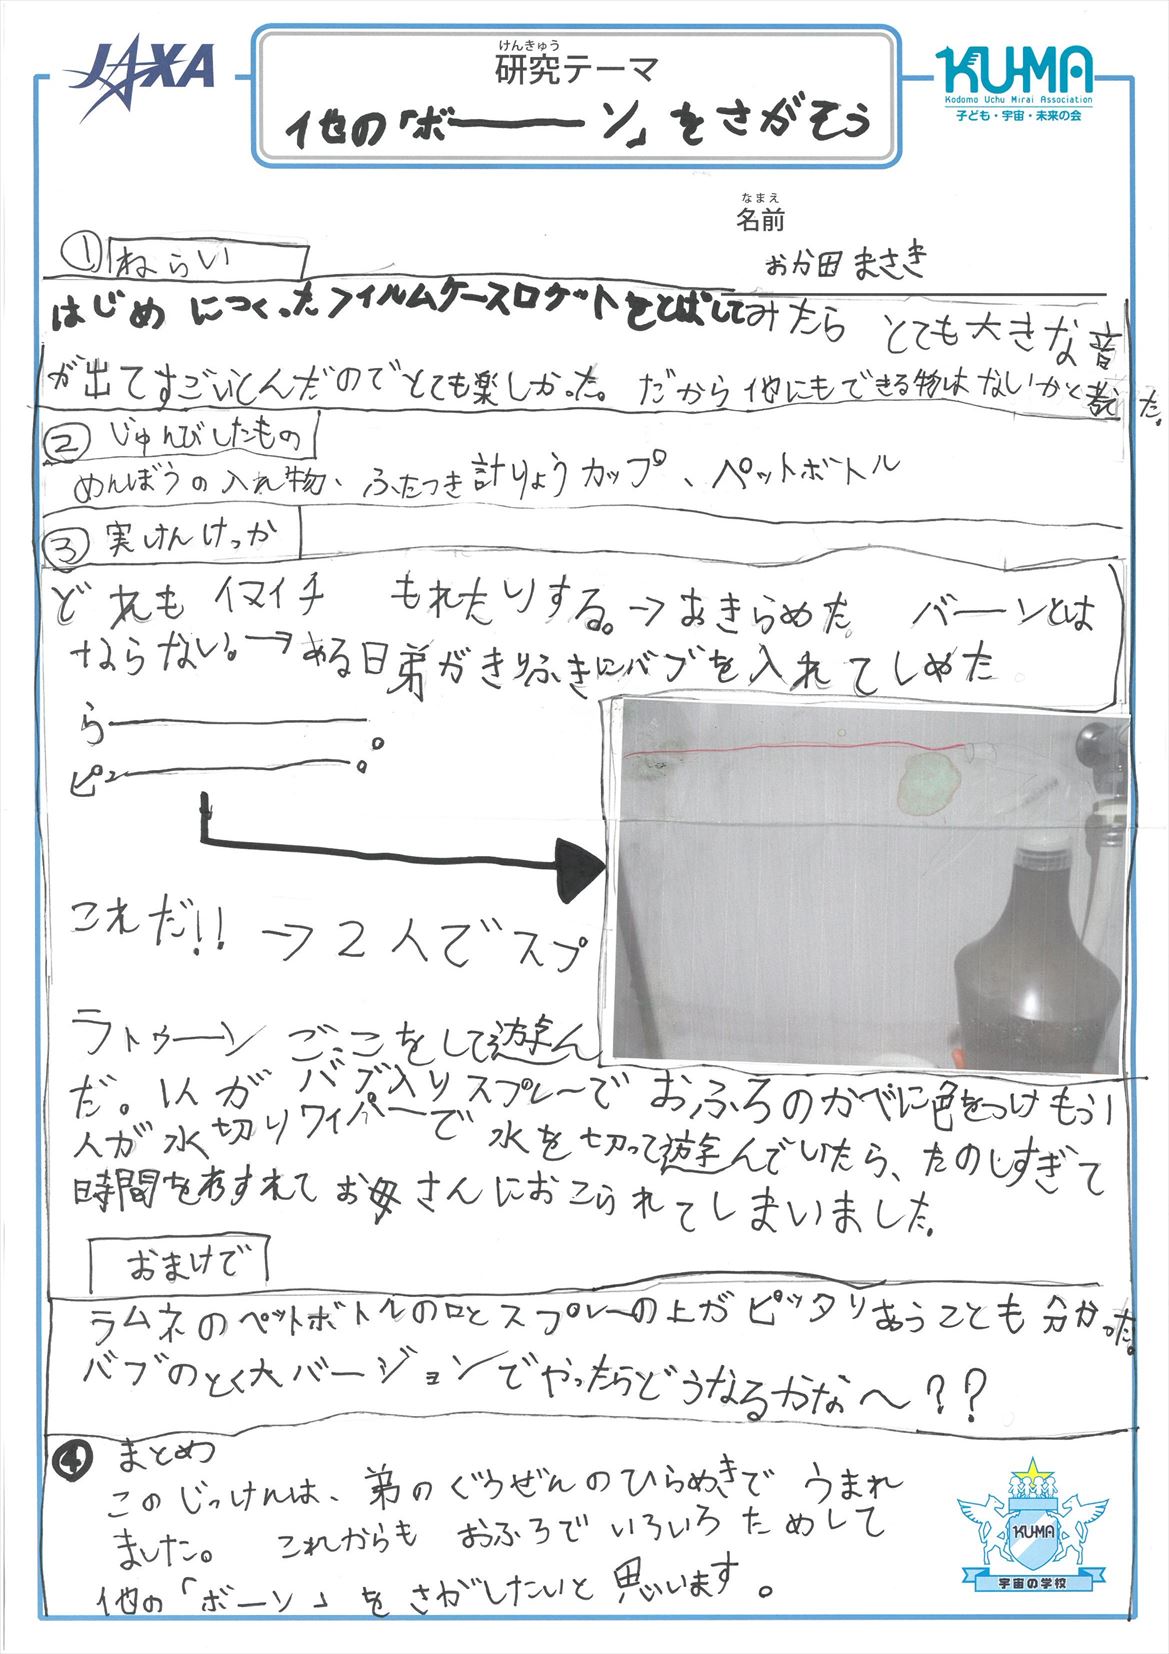 JAXA
けんきゅう
研究テーマ
他の「ボーーーン」をさがそう
KU-MA
Kodomo Uchu Mirai Association
子ども・宇宙・未来の会
なまえ
名前
おか田 まさき
① ねらい
はじめ につくったフィルムケースロケットをとばしてみたら とても大きな音
が出てすごいとんだのでとても楽しかった。だから他にもできる物はないかと考えた。
② じゅんびしたもの
めんぼうの入れ物、ふたつき計りょうカップ、ペットボトル
③ 実けんけっか
どれも イマイチ もれたりする。→あきらめた バーーンとは
ならない。→ある日弟がきりふきにバブを入れてしめた
ら――――。
ピュ――――。
これだ!! →2人でスプ
ラトゥーン ごっこをして遊ん
だ。1人が バブ入りスプレーで おふろのかべに色をつけもう1
人が水切りワイパーで 水を切って遊んでいたら、たのしすぎて
時間をわすれて お母さんにおこられてしまいました。
おまけで
ラムネのペットボトルの口とスプレーの上が ピッタリあうことも 分かった。
バブのとく大バージョンでやったらどうなるかな〜??
④ まとめ
このじっけんは、弟のぐうぜんのひらめきで うまれ
ました。 これからも おふろで いろいろ ためして
他の「ボーン」をさがしたいと思います。
KU-MA
宇宙の学校